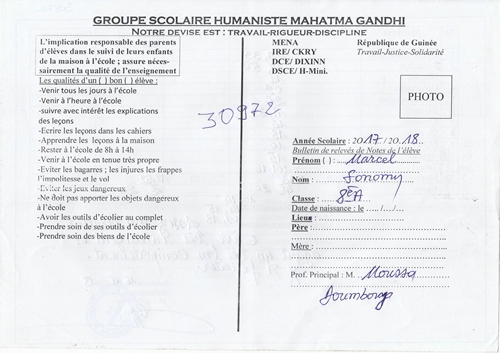 GROUPE SCOLAIRE HUMANISTE MAHATMA GANDHI
NOTRE DEVISE EST : TRAVAIL-RIGUEUR-DISCIPLINE
L'implication responsable des parents
d'élèves dans le suivi de leurs enfants
de la maison à l'école ; assure néces-
sairement la qualité de l'enseignement
Les qualités d'un ( ) bon ( ) élève :
-Venir tous les jours à l'école
-Venir à l'heure à l'école
-suivre avec intérêt les explications
des leçons
-Ecrire les leçons dans les cahiers
-Apprendre les leçons à la maison
-Rester à l'école de 8h à 14h
-Venir à l'école en tenue très propre
-Eviter les bagarres ; les injures les frappes
l'impolitesse et le vol
-Eviter les jeux dangereux
-Ne doit pas apporter les objets dangereux
à l'école
-Avoir les outils d'écolier au complet
-Prendre soin de ses outils d'écolier
-Prendre soin des biens de l'école
30972
MENA
IRE/ CKRY
DCE/ DIXINN
DSCE/ H-Mini.
République de Guinée
Travail-Justice-Solidarité
PHOTO
Année Scolaire : 2017/2018
Bulletin de relevés de Notes de l'élève
Prénom ( ) : Marcel
Nom : Sonomy
Classe : 8èA
Date de naissance : le ..../ ..../
Lieu :
Père :
Mère :
Prof. Principal : M. Moussa
Doumbouya